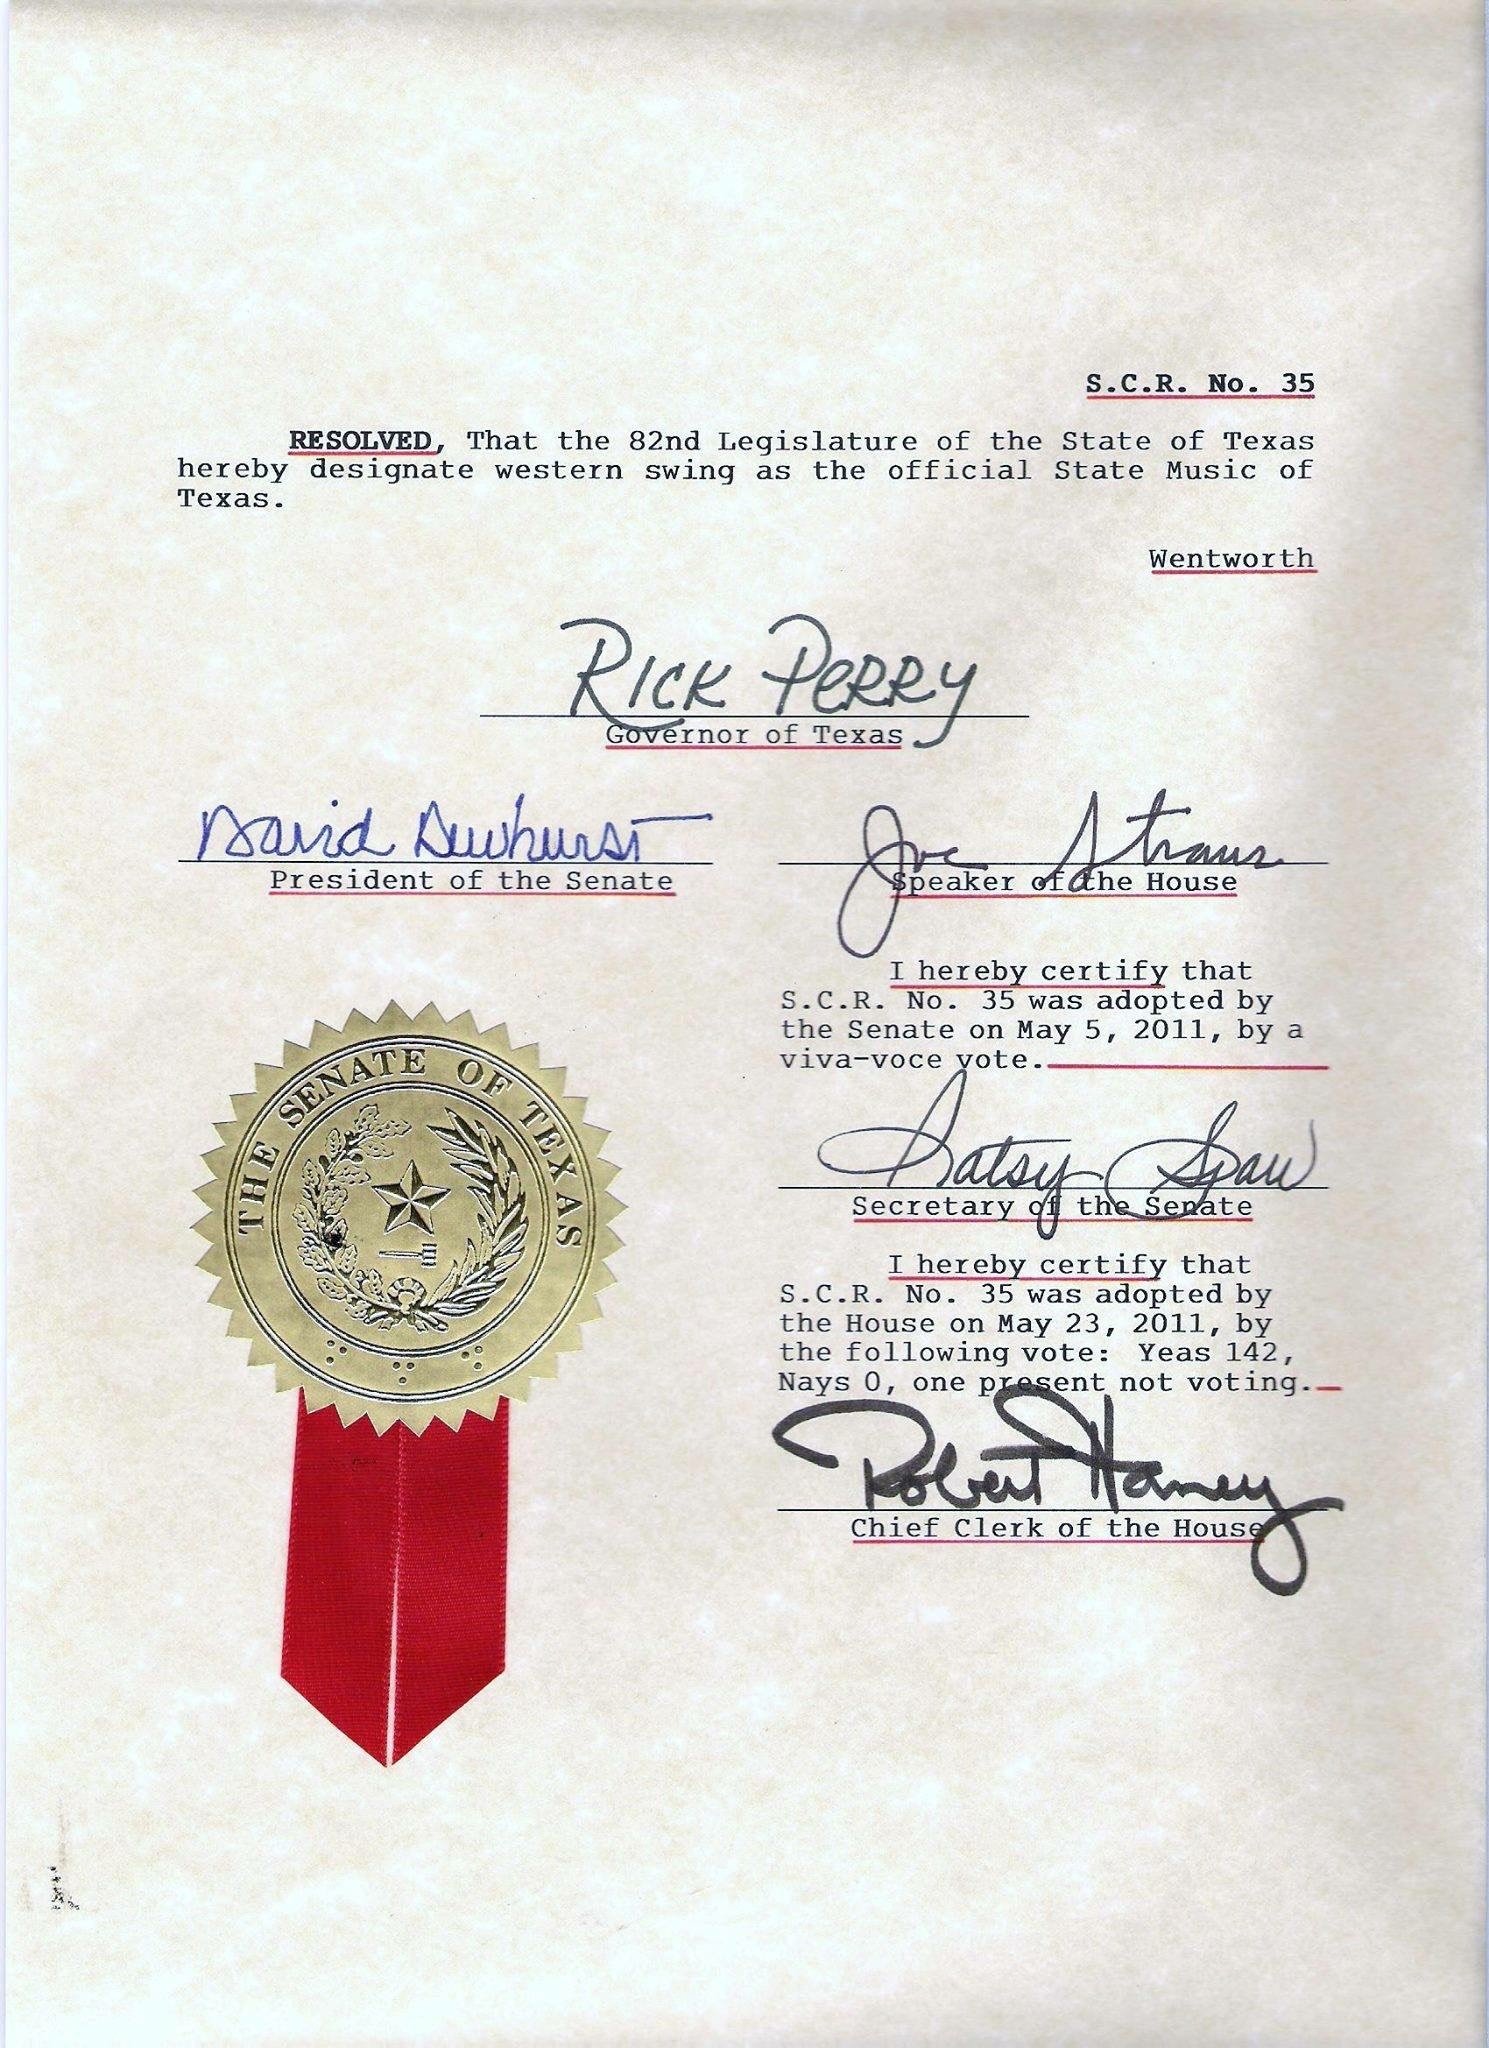 S.C.R. No. 35
RESOLVED, That the 82nd Legislature of the State of Texas
hereby designate western swing as the official State Music of
Texas.
Wentworth
RICK PERRY
Governor of Texas
David Dewhurst
President of the Senate
Joe Straus
Speaker of the House
I hereby certify that
S.C.R. No. 35 was adopted by
the Senate on May 5, 2011, by a
viva-voce vote.
Patsy Spaw
Secretary of the Senate
I hereby certify that
S.C.R. No. 35 was adopted by
the House on May 23, 2011, by
the following vote: Yeas 142,
Nays 0, one present not voting.
Robert Haney
Chief Clerk of the House
THE SENATE OF TEXAS